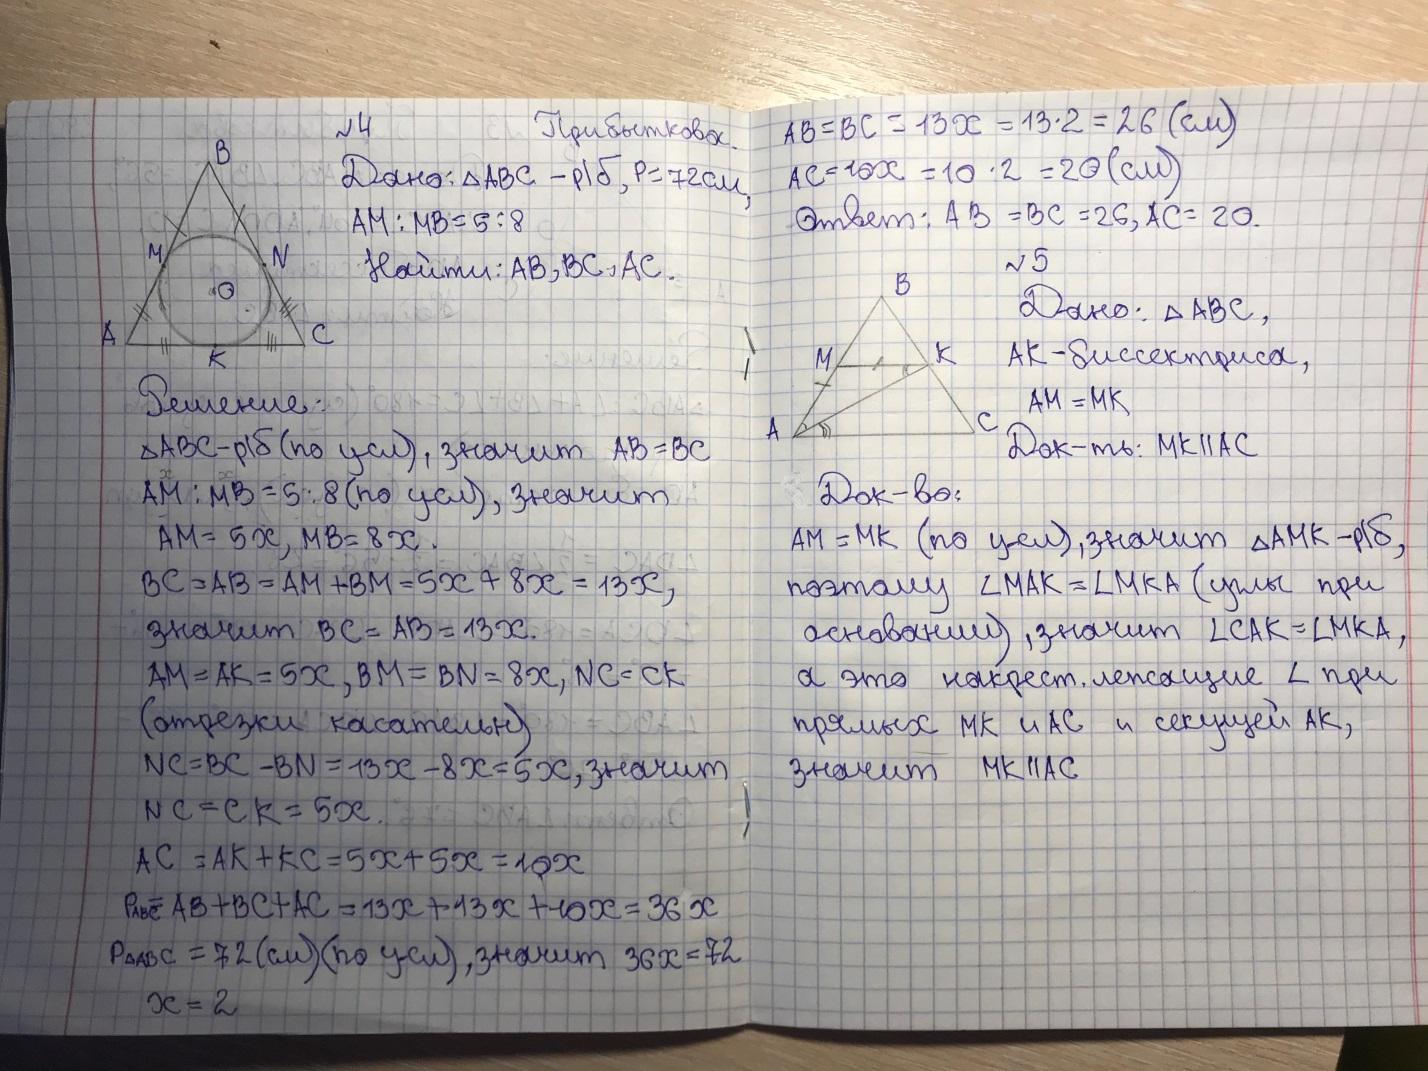 №4 Прибыткова.
Дано: △ABC – р/б, P=72см,
AM : MB = 5 : 8
Найти: AB, BC, AC.
B
M
N
O
A
K
C
Решение:
△ABC – р/б (по усл), значит AB = BC
AM : MB = 5 : 8 (по усл), значит
AM = 5x, MB = 8x.
BC = AB = AM + BM = 5x + 8x = 13x,
значит BC = AB = 13x.
AM = AK = 5x, BM = BN = 8x, NC = CK
(отрезки касательн)
NC = BC – BN = 13x – 8x = 5x, значит
NC = CK = 5x.
AC = AK + KC = 5x + 5x = 10x
PABC = AB + BC + AC = 13x + 13x + 10x = 36x
P△ABC = 72 (см) (по усл), значит 36x = 72
x = 2
AB = BC = 13x = 13·2 = 26 (см)
AC = 10x = 10 · 2 = 20 (см)
Ответ: AB = BC = 26, AC = 20.
№5
B
M
K
A
C
Дано: △ABC,
AK – биссектриса,
AM = MK
Док-ть: MK || AC
Док-во:
AM = MK (по усл), значит △AMK – р/б,
поэтому ∠MAK = ∠MKA (углы при
основании), значит ∠CAK = ∠MKA,
а это накрест. лежащие ∠ при
прямых MK и AC и секущей AK,
значит MK || AC